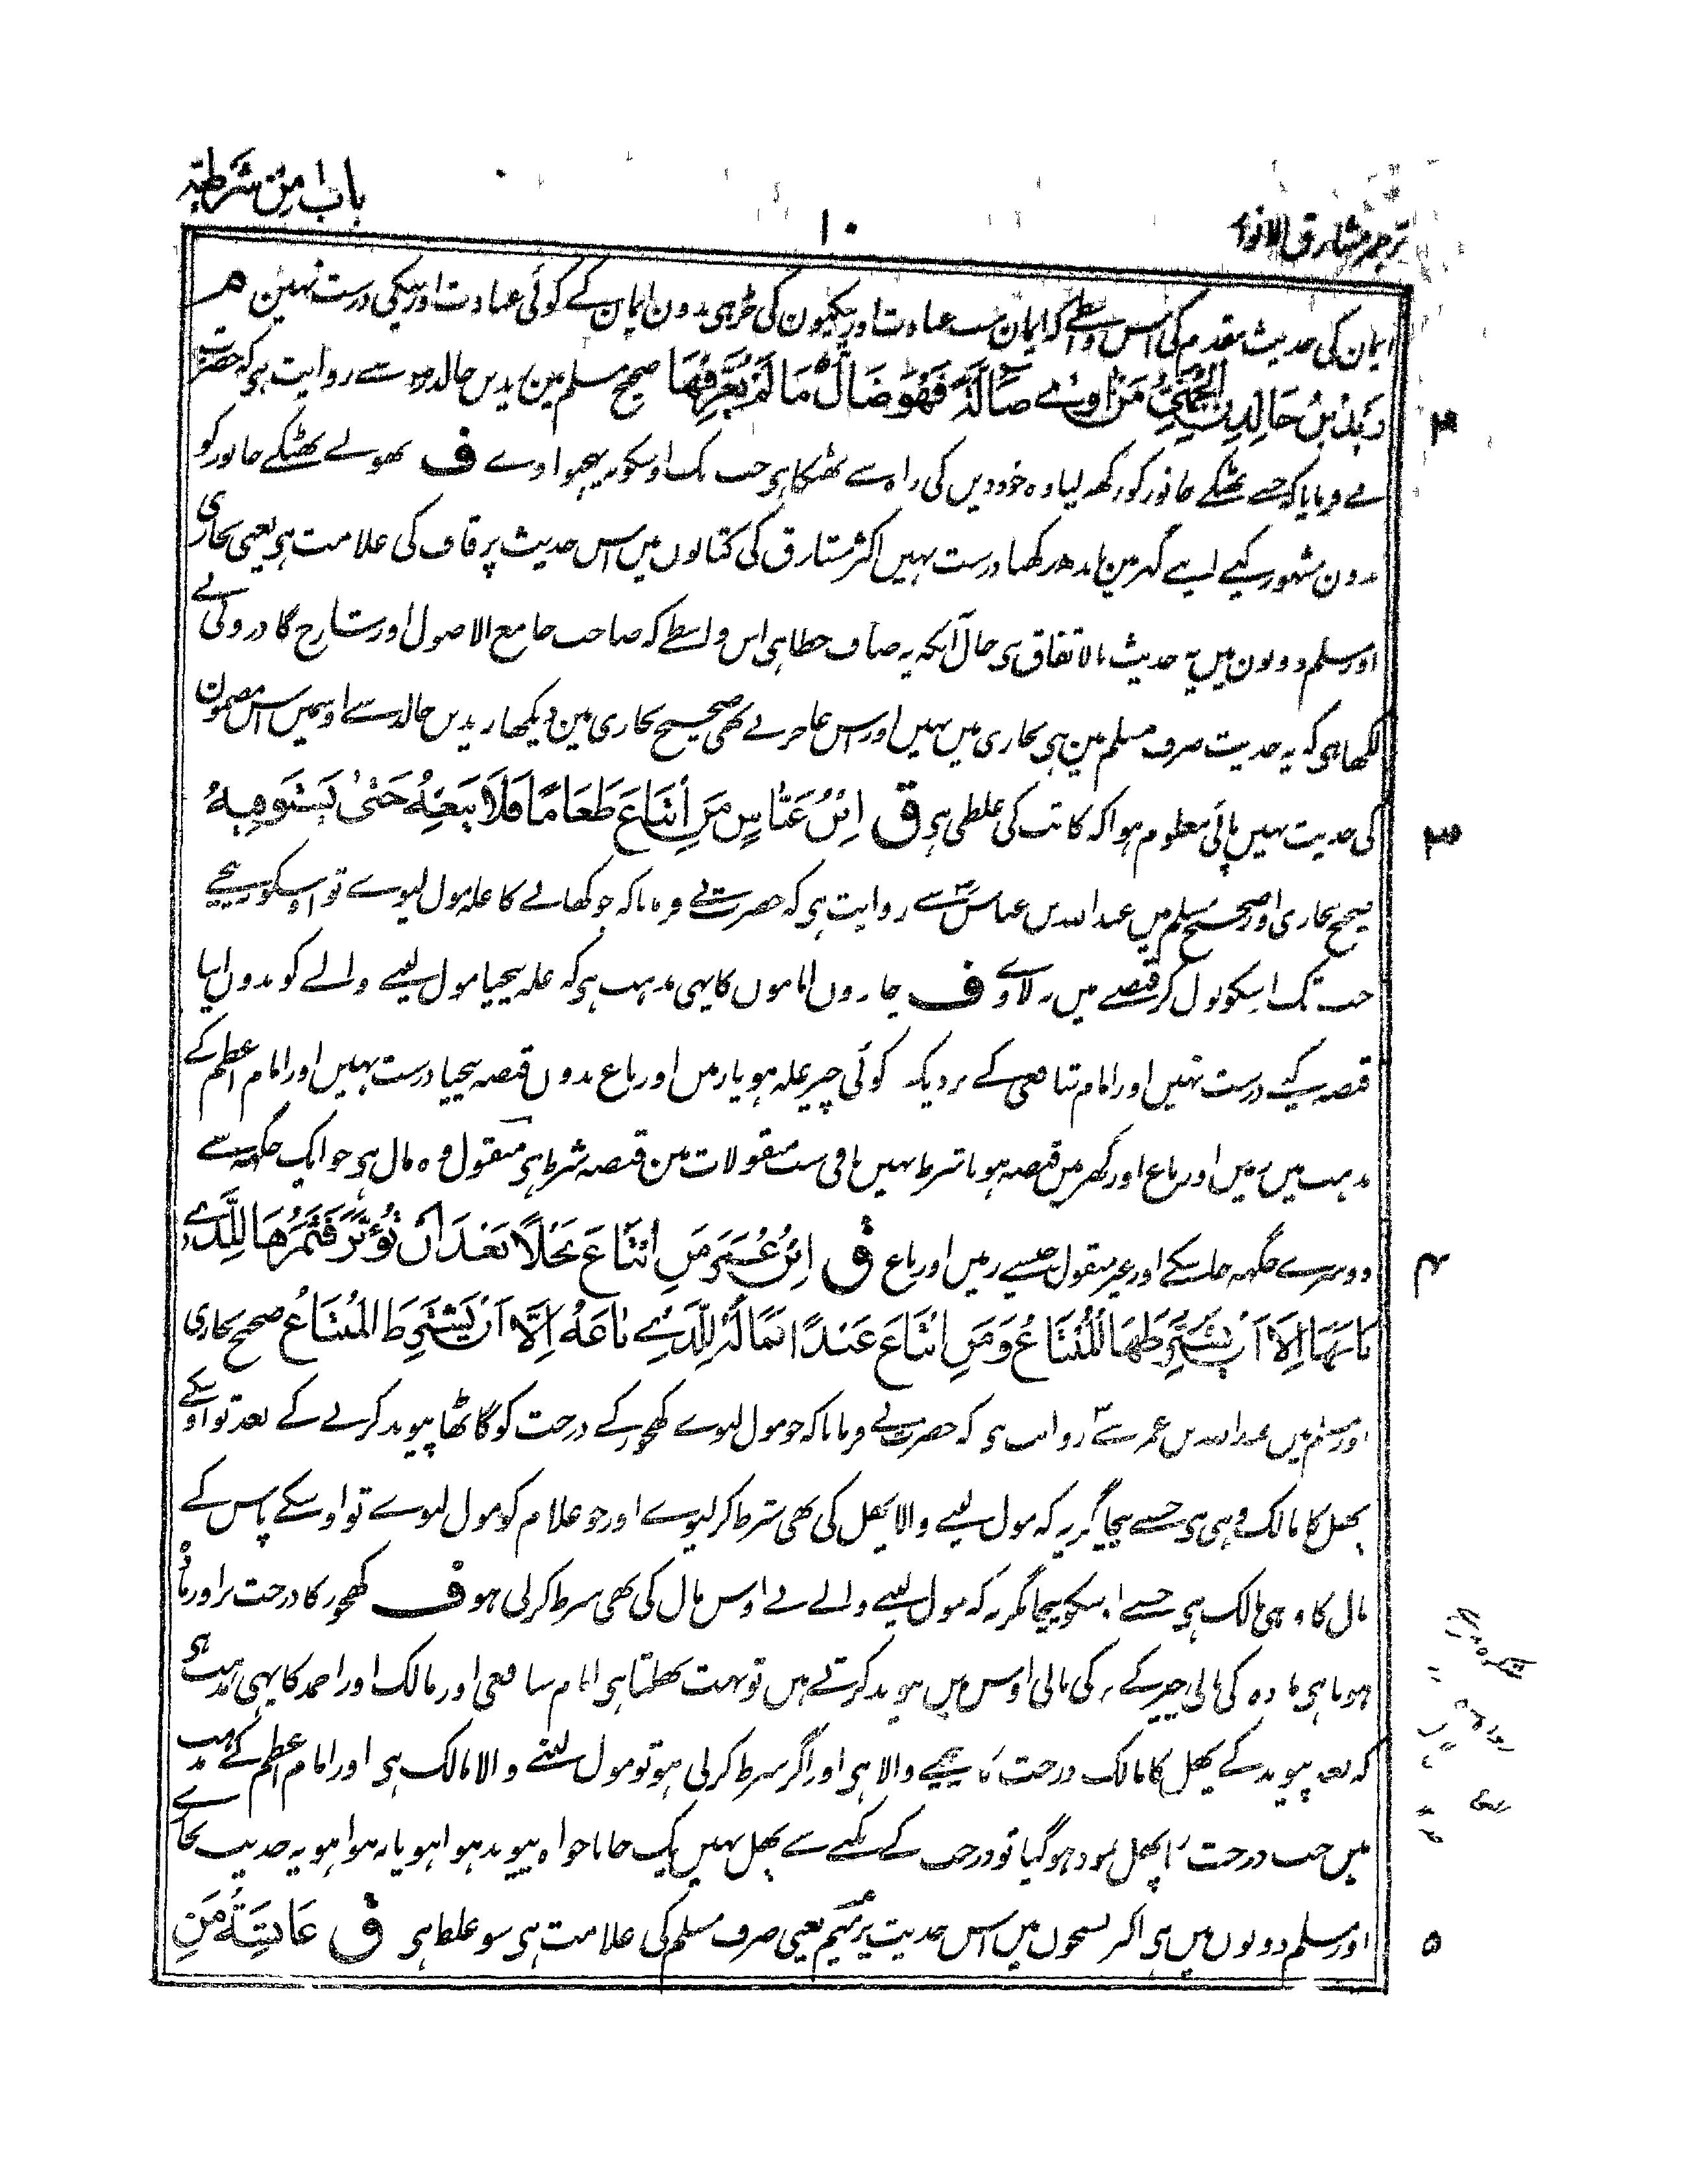 باب ١ من شرطیہ
١٠
ترجمہ مشارق الانوار
ایمان کی حدیث مقدم کی اس واسطے کہ ایمان سب عبادت اور نیکیون کی جڑ ہی بدون ایمان کے کوئی عبادت اور نیکی درست نہین م
٢ زَيْدُ بْنُ خَالِدٍ الْجُهَنِيُّ مَنْ اٰوٰے ضَالَّةً فَهُوَ ضَالٌّ مَا لَمْ يُعَرِّفْهَا صحیح مسلم مین زید بن خالد سے روایت ہی کہ حضرت
نے فرمایا کہ جسے بھٹکے جانور کو رکھ لیا وہ خود دین کی راہ سے بھٹکا ہی جب تک اوسکو نہ پھیرا دے ف بھولے بھٹکے جانور کو
بدون مشہور کیے اپنے گھر مین باندھ رکھنا درست نہین اکثر مشارق کی کتابون مین اس حدیث پر قاف کی علامت ہی یعنی بخاری
اور مسلم دونون مین یہ حدیث بالاتفاق ہی حال آنکہ یہ صاف خطا ہی اس واسطے کہ صاحب جامع الاصول اور شارح گاذرونی نے
لکھا ہی کہ یہ حدیث صرف مسلم مین ہی بخاری مین نہین اور اس عاجز نے بھی صحیح بخاری مین دیکھا زید بن خالد سے اوسمین اس مضمون
٣ کی حدیث نہین پائی معلوم ہوا کہ کاتب کی غلطی ہی ق اِبْنُ عَبَّاسٍ مَنِ ابْتَاعَ طَعَامًا فَلَا يَبِعْهُ حَتّٰى يَسْتَوْفِيَهُ
صحیح بخاری اور صحیح مسلم مین عبد اللہ بن عباس سے روایت ہی کہ حضرت نے فرمایا کہ جو کھانے کا غلہ مول لیوے تو اوسکو نہ بیچے
جب تک اسکو تول کر قبضے مین نہ لاوے ف چارون امامون کا یہی مذہب ہی کہ غلہ بیچنا مول لینے والے کو بدون اپنا
قبضہ کیے درست نہین اور امام شافعی کے نزدیک کوئی چیز غلہ ہو یا زمین اور باغ بدون قبضہ بیچنا درست نہین اور امام اعظم کے
مذہب مین زمین اور باغ اور گھر مین قبضہ ہونا شرط نہین باقی سب منقولات مین قبضہ شرط ہی منقول وہ مال ہی جو ایک جگہہ سے
٤ دوسرے جگہہ جا سکے اور غیر منقول جیسے زمین اور باغ ق اِبْنُ عُمَرَ مَنِ ابْتَاعَ نَخْلًا بَعْدَ اَنْ تُؤَبَّرَ فَثَمَرُهَا لِلَّذِے
بَاعَهَا اِلَّا اَنْ يَشْتَرِطَهَا الْمُبْتَاعُ وَمَنِ ابْتَاعَ عَبْدًا فَمَالُهُ لِلَّذِے بَاعَهُ اِلَّا اَنْ يَشْتَرِطَ الْمُبْتَاعُ صحیح بخاری
اور مسلم مین عبد اللہ بن عمر سے روایت ہی کہ حضرت نے فرمایا کہ جو مول لیوے کھجور کے درخت کو گابھا پیوند کرنے کے بعد تو اوسکے
پھل کا مالک وہی ہی جسے بیچا مگر یہ کہ مول لینے والا پھل کی بھی شرط کر لیوے اور جو غلام کو مول لیوے تو اوسکے پاس کے
مال کا وہی مالک ہی جسے اوسکو بیچا مگر یہ کہ مول لینے والے نے اوس مال کی بھی شرط کر لی ہو ف کھجور کا درخت نر اور مادہ
ہوتا ہی مادہ کی بالی چیر کے نر کی بالی اوس مین پیوند کرتے ہین تو بہت پھلتا ہی امام شافعی اور مالک اور احمد کا یہی مذہب ہی
کہ بعد پیوند کے پھل کا مالک درخت کا بیچنے والا ہی اور اگر شرط کر لی ہو تو مول لینے والا مالک ہی اور امام اعظم کے مذہب
مین جب درخت کا پھل نمود ہو گیا تو درخت کے بکنے سے پھل نہین بک جاتا خواہ پیوند ہوا ہو یا نہ ہوا ہو یہ حدیث بخاری
٥ اور مسلم دونون مین ہی اکثر نسخون مین اس حدیث پر میم یعنی صرف مسلم کی علامت ہی سو غلط ہی ق عَائِشَةُ مَنِ